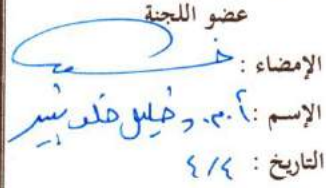 عضو اللجنة
الإمضاء :
الإسم : أ.م.د خليل خلف
التاريخ : ٤/٤